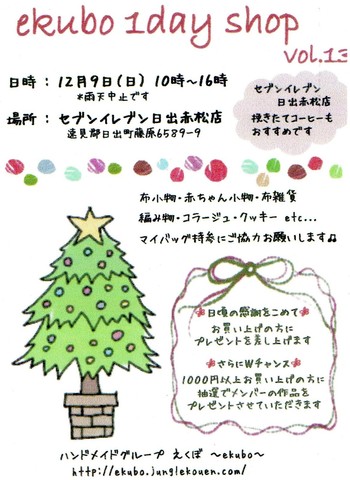 ekubo 1day shop
vol.13
日時 : 12月9日(日) 10時～16時
*雨天中止です
場所 : セブンイレブン日出赤松店
速見郡日出町藤原6589-9
セブンイレブン
日出赤松店
挽きたてコーヒーも
おすすめです
布小物・赤ちゃん小物・布雑貨
編み物・コラージュ・クッキー etc...
マイバッグ持参にご協力お願いします♫
日頃の感謝をこめて
お買い上げの方に
プレゼントを差し上げます
さらにWチャンス
1000円以上お買い上げの方に
抽選でメンバーの作品を
プレゼントさせていただきます
ハンドメイドグループ えくぼ ～ekubo～
http://ekubo.junglekouen.com/